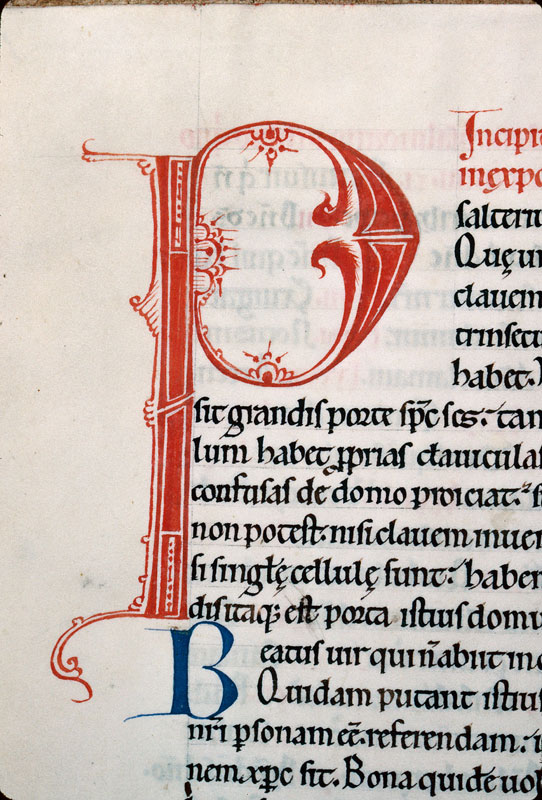 Incipit
in expo
P salteriu
Quę un
clavem
trinsecu
habet.
sit grandis porte sp̄c scs. tan
lum habet ꝓprias clauiculas
confusas de domo proiciat. si
non potest. nisi clavem inuen
si singlę cellulę sunt. haben
disitaq; est porta istius domu
B eatus uir qui n̄ abiit in c
Quidam putant istius
nr̄i ꝑsonam eē. referendam. i
nem xp̄c sit. Bona quidē uol